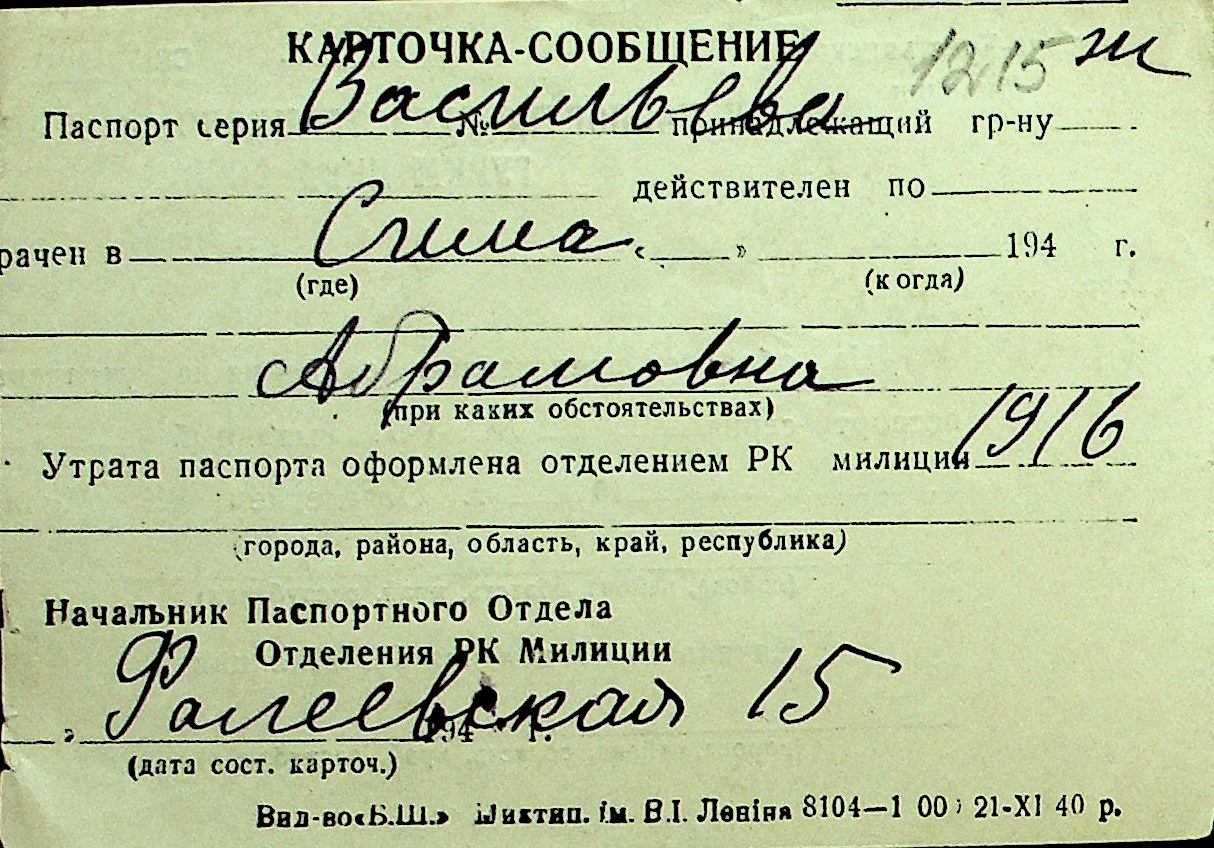 КАРТОЧКА-СООБЩЕНИЕ 1215 Ж
Васильева
Паспорт серия № принадлежащий гр-ну
действителен по
Сима
рачен в « » 194 г.
(где) (когда)
Абрамовна
(при каких обстоятельствах)
1916
Утрата паспорта оформлена отделением РК милиции
(города, района, область, край, республика)
Начальник Паспортного Отдела
Отделения РК Милиции
Фалеевская 15
» 194 г.
(дата сост. карточ.)
Вид-во «Б.Ш.» ім. В.І. Леніна 8104—1 00 21-XI 40 р.